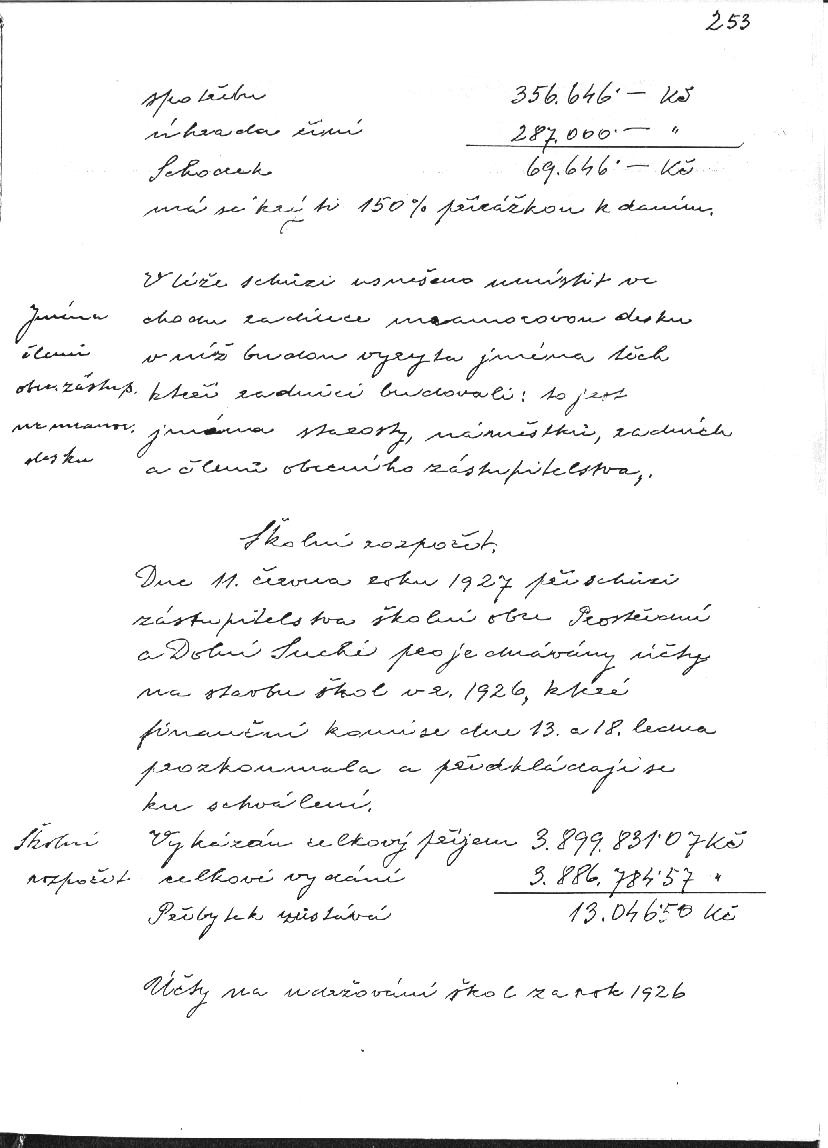 253
spotřebu 356.646·— Kč
úhrada činí 287.000·— "
Schodek 69.646·— Kč
má se krýti 150% přirážkou k daním.
V téže schůzi usnešeno umístit ve
chodu radnice mramorovou desku
v níž budou vyryta jména těch
kteří radnici budovali: to jest
jména starosty, náměstků, radních
a členů obecního zástupitelstva,.
Jména
členů
obec. zástup.
na mramor.
desku
Školní rozpočet.
Dne 11. června roku 1927 při schůzi
zástupitelstva školní obce Prostřední
a Dolní Suché projednávány účty
na stavbu škol v r. 1926, které
finanční komise dne 13. a 18. ledna
prozkoumala a předkládají se
ku schválení.
Školní
rozpočet
Vykázán celkový příjem 3.899.831·07 Kč
celkové vydání 3.886.784·57 "
Přebytek zůstává 13.046·50 Kč
Účty na udržování škol za rok 1926